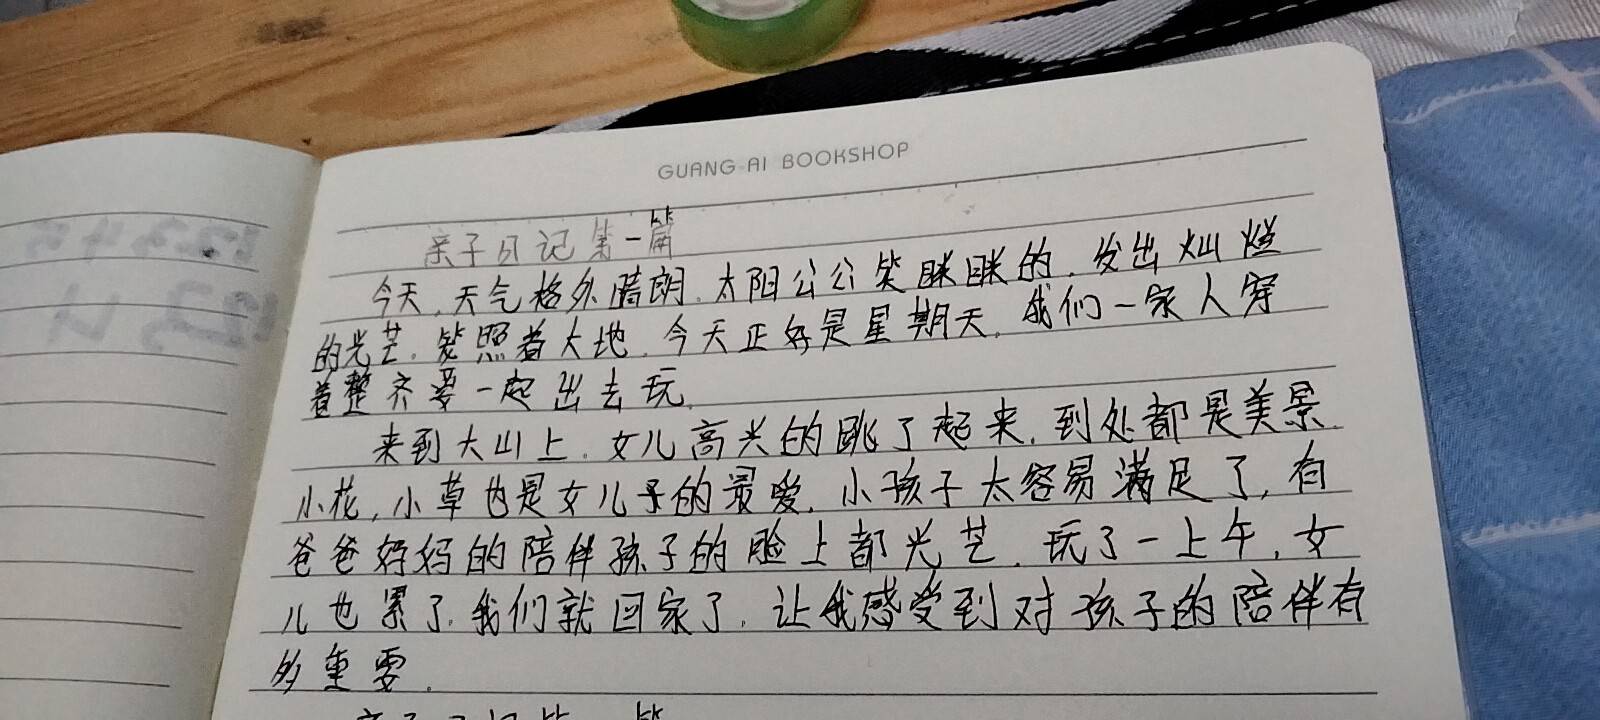 GUANG AI BOOKSHOP
亲子日记第一篇
今天,天气格外晴朗.太阳公公笑眯眯的.发出灿烂
的光芒.笼照着大地.今天正好是星期天.我们一家人穿
着整齐要一起出去玩.
来到大山上.女儿高兴的跳了起来.到处都是美景.
小花,小草也是女儿子的最爱.小孩子太容易满足了,有
爸爸妈妈的陪伴孩子的脸上都光芒.玩了一上午,女
儿也累了.我们就回家了.让我感受到对孩子的陪伴有
多重要.